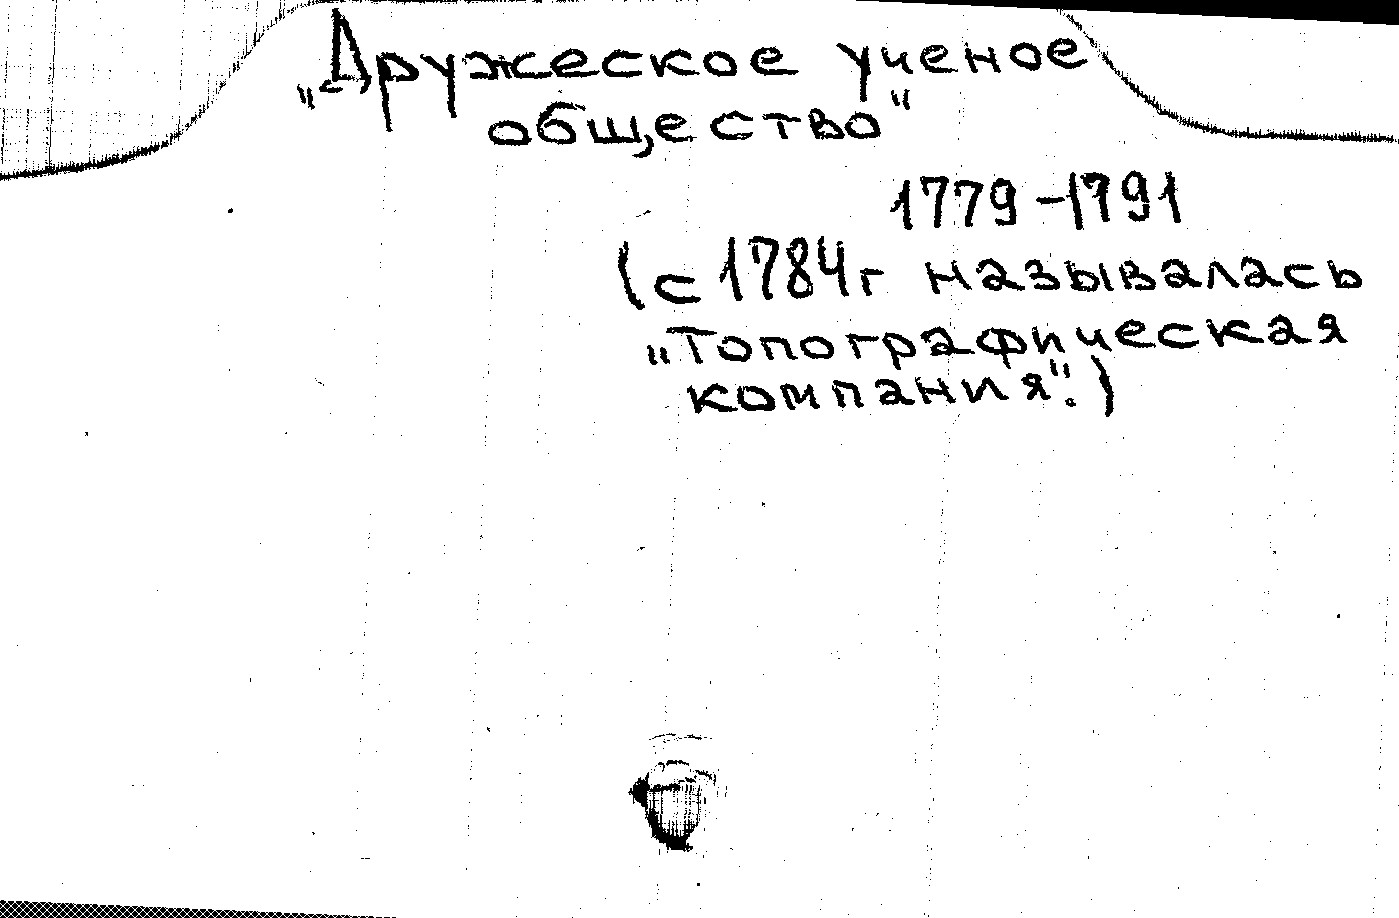 „Дружеское ученое
общество"
1779-1791
(с 1784г называлась
„Топографическая
компания".)